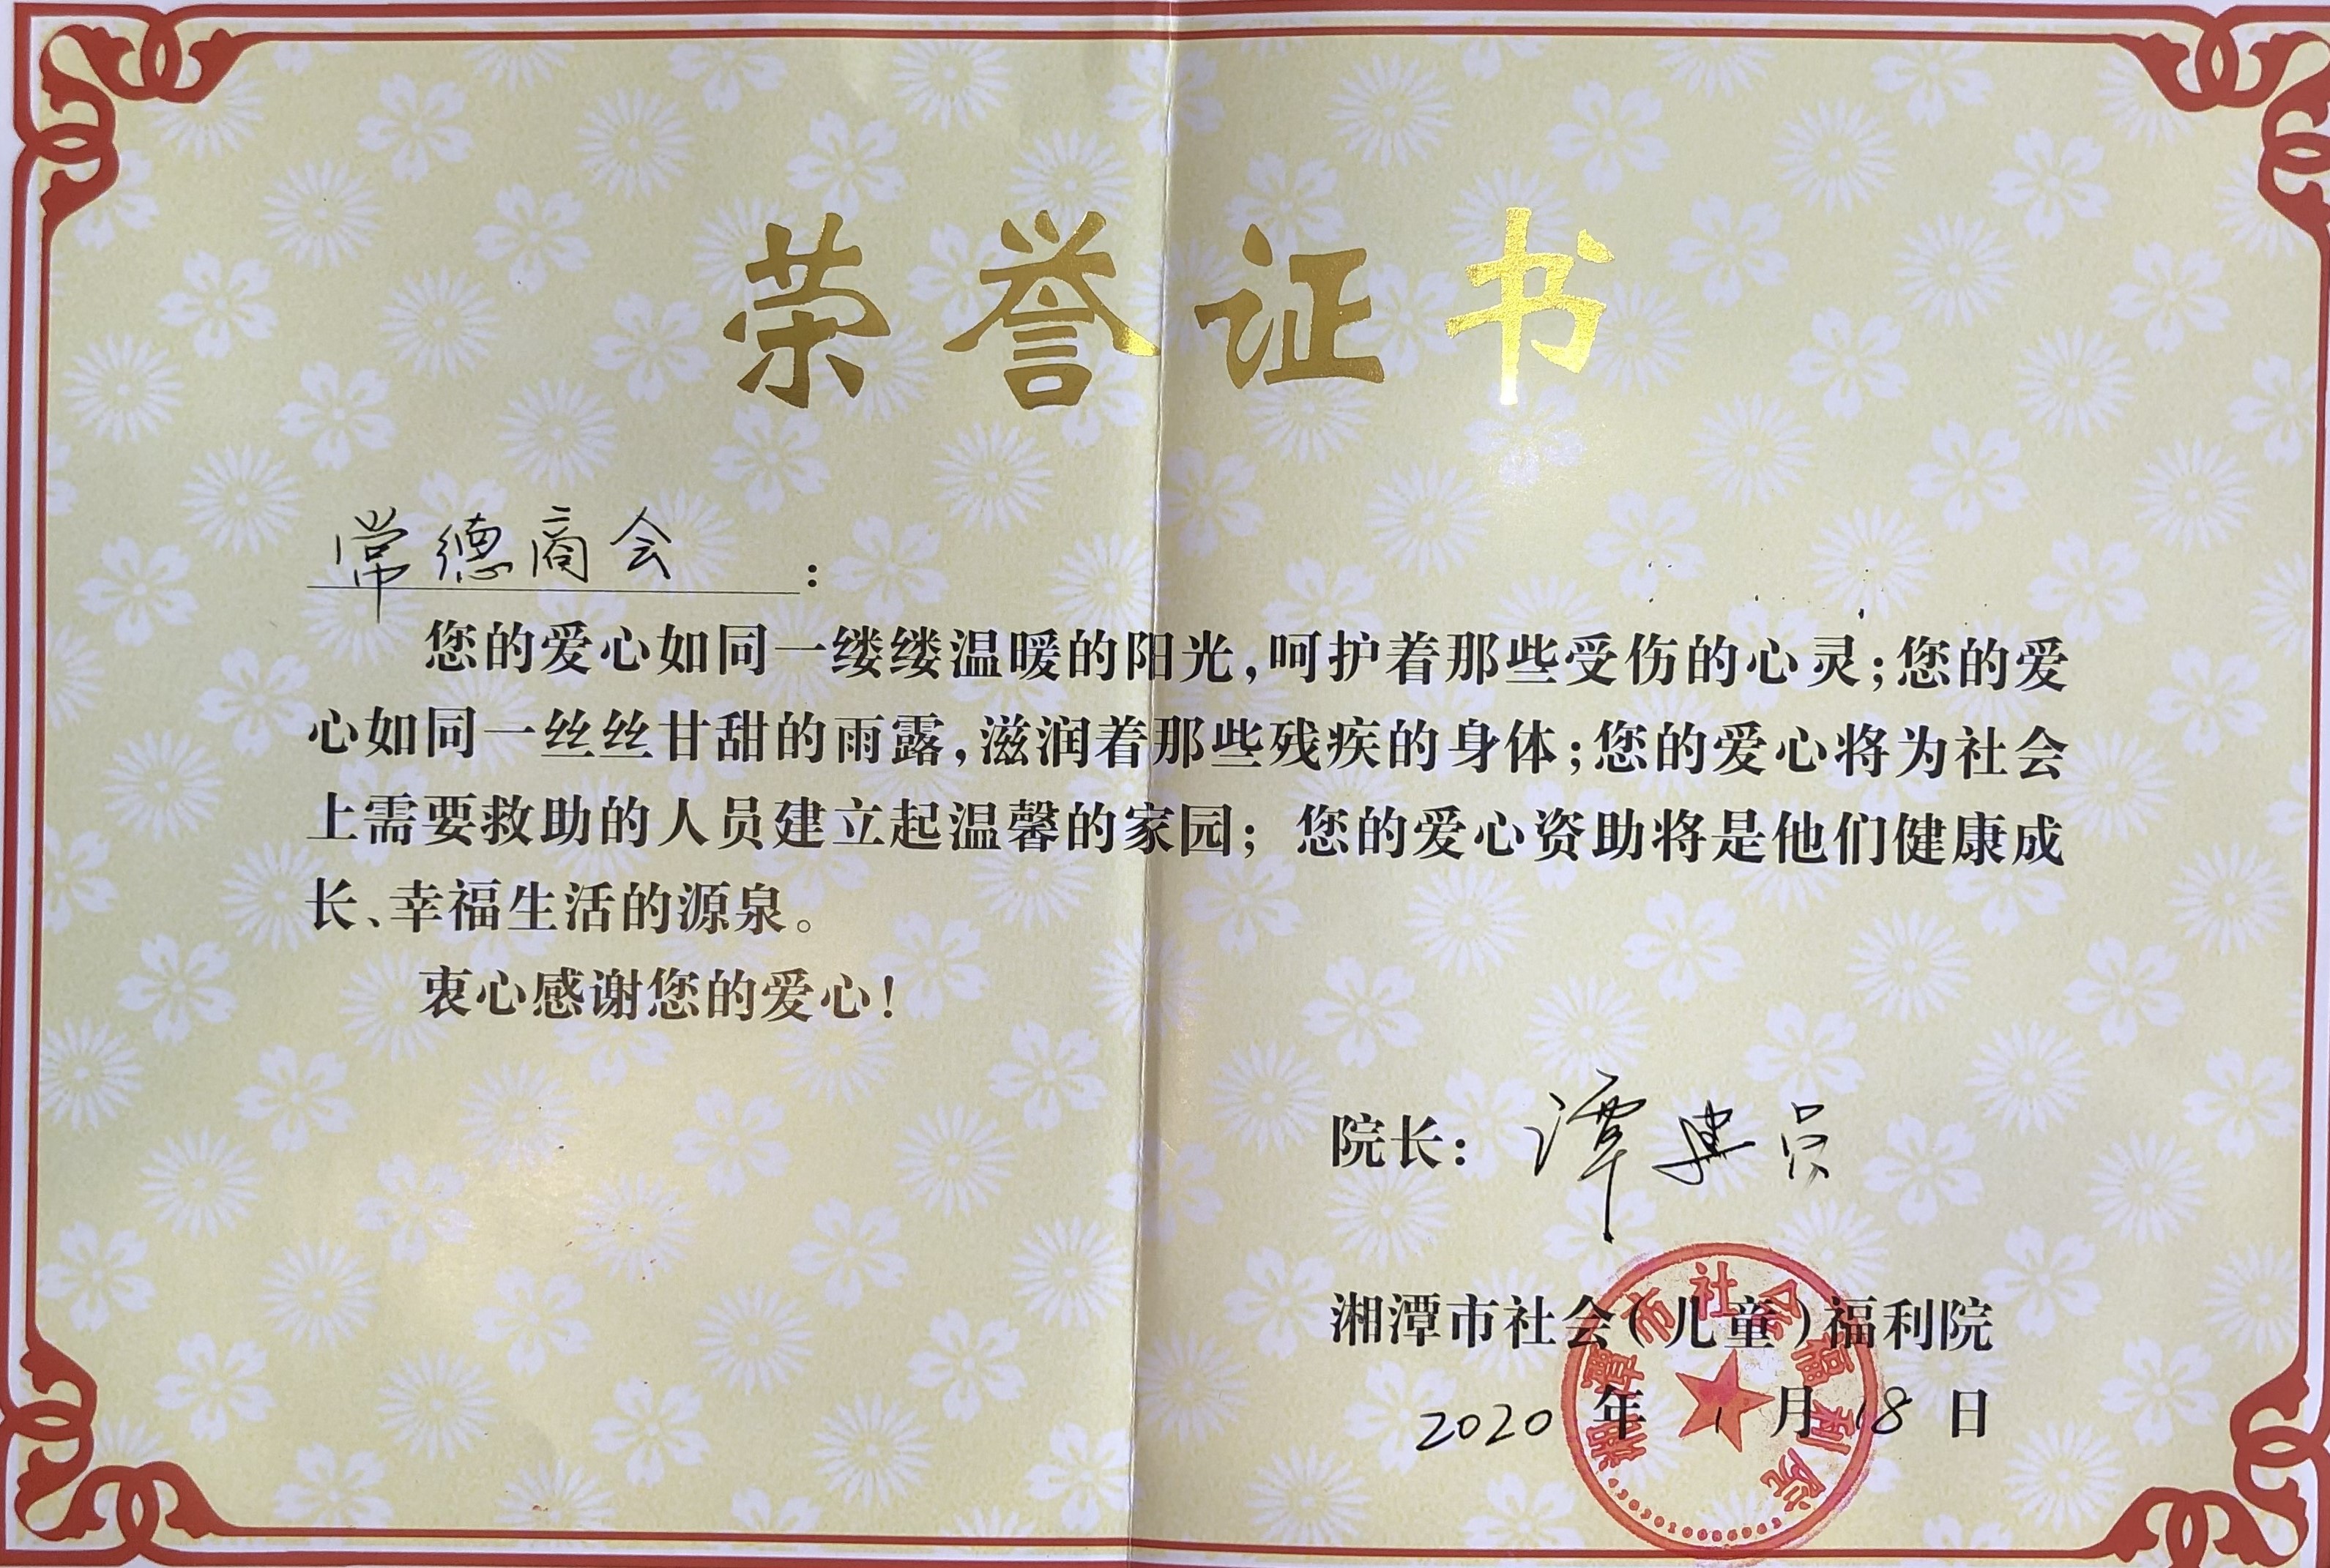 荣誉证书
常德商会：
您的爱心如同一缕缕温暖的阳光，呵护着那些受伤的心灵；您的爱
心如同一丝丝甘甜的雨露，滋润着那些残疾的身体；您的爱心将为社会
上需要救助的人员建立起温馨的家园；您的爱心资助将是他们健康成
长、幸福生活的源泉。
衷心感谢您的爱心！
院长：谭建
湘潭市社会（儿童）福利院
2020年1月18日
湘潭市社会福利院